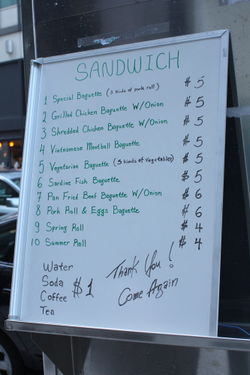 SANDWICH
1 Special Baguette (3 kinds of pork roll) $ 5
2 Grilled Chicken Baguette W/Onion $ 5
3 Shredded Chicken Baguette W/Onion $ 5
4 Vietnamese Meatball Baguette $ 5
5 Vegetarian Baguette (3 kinds of vegetables) $ 5
6 Sardine Fish Baguette $ 5
7 Pan Fried Beef Baguette W/Onion $ 6
8 Pork Roll & Eggs Baguette $ 6
9 Spring Roll $ 4
10 Summer Roll $ 4
Water
Soda
Coffee $1
Tea
Thank You!
Come Again